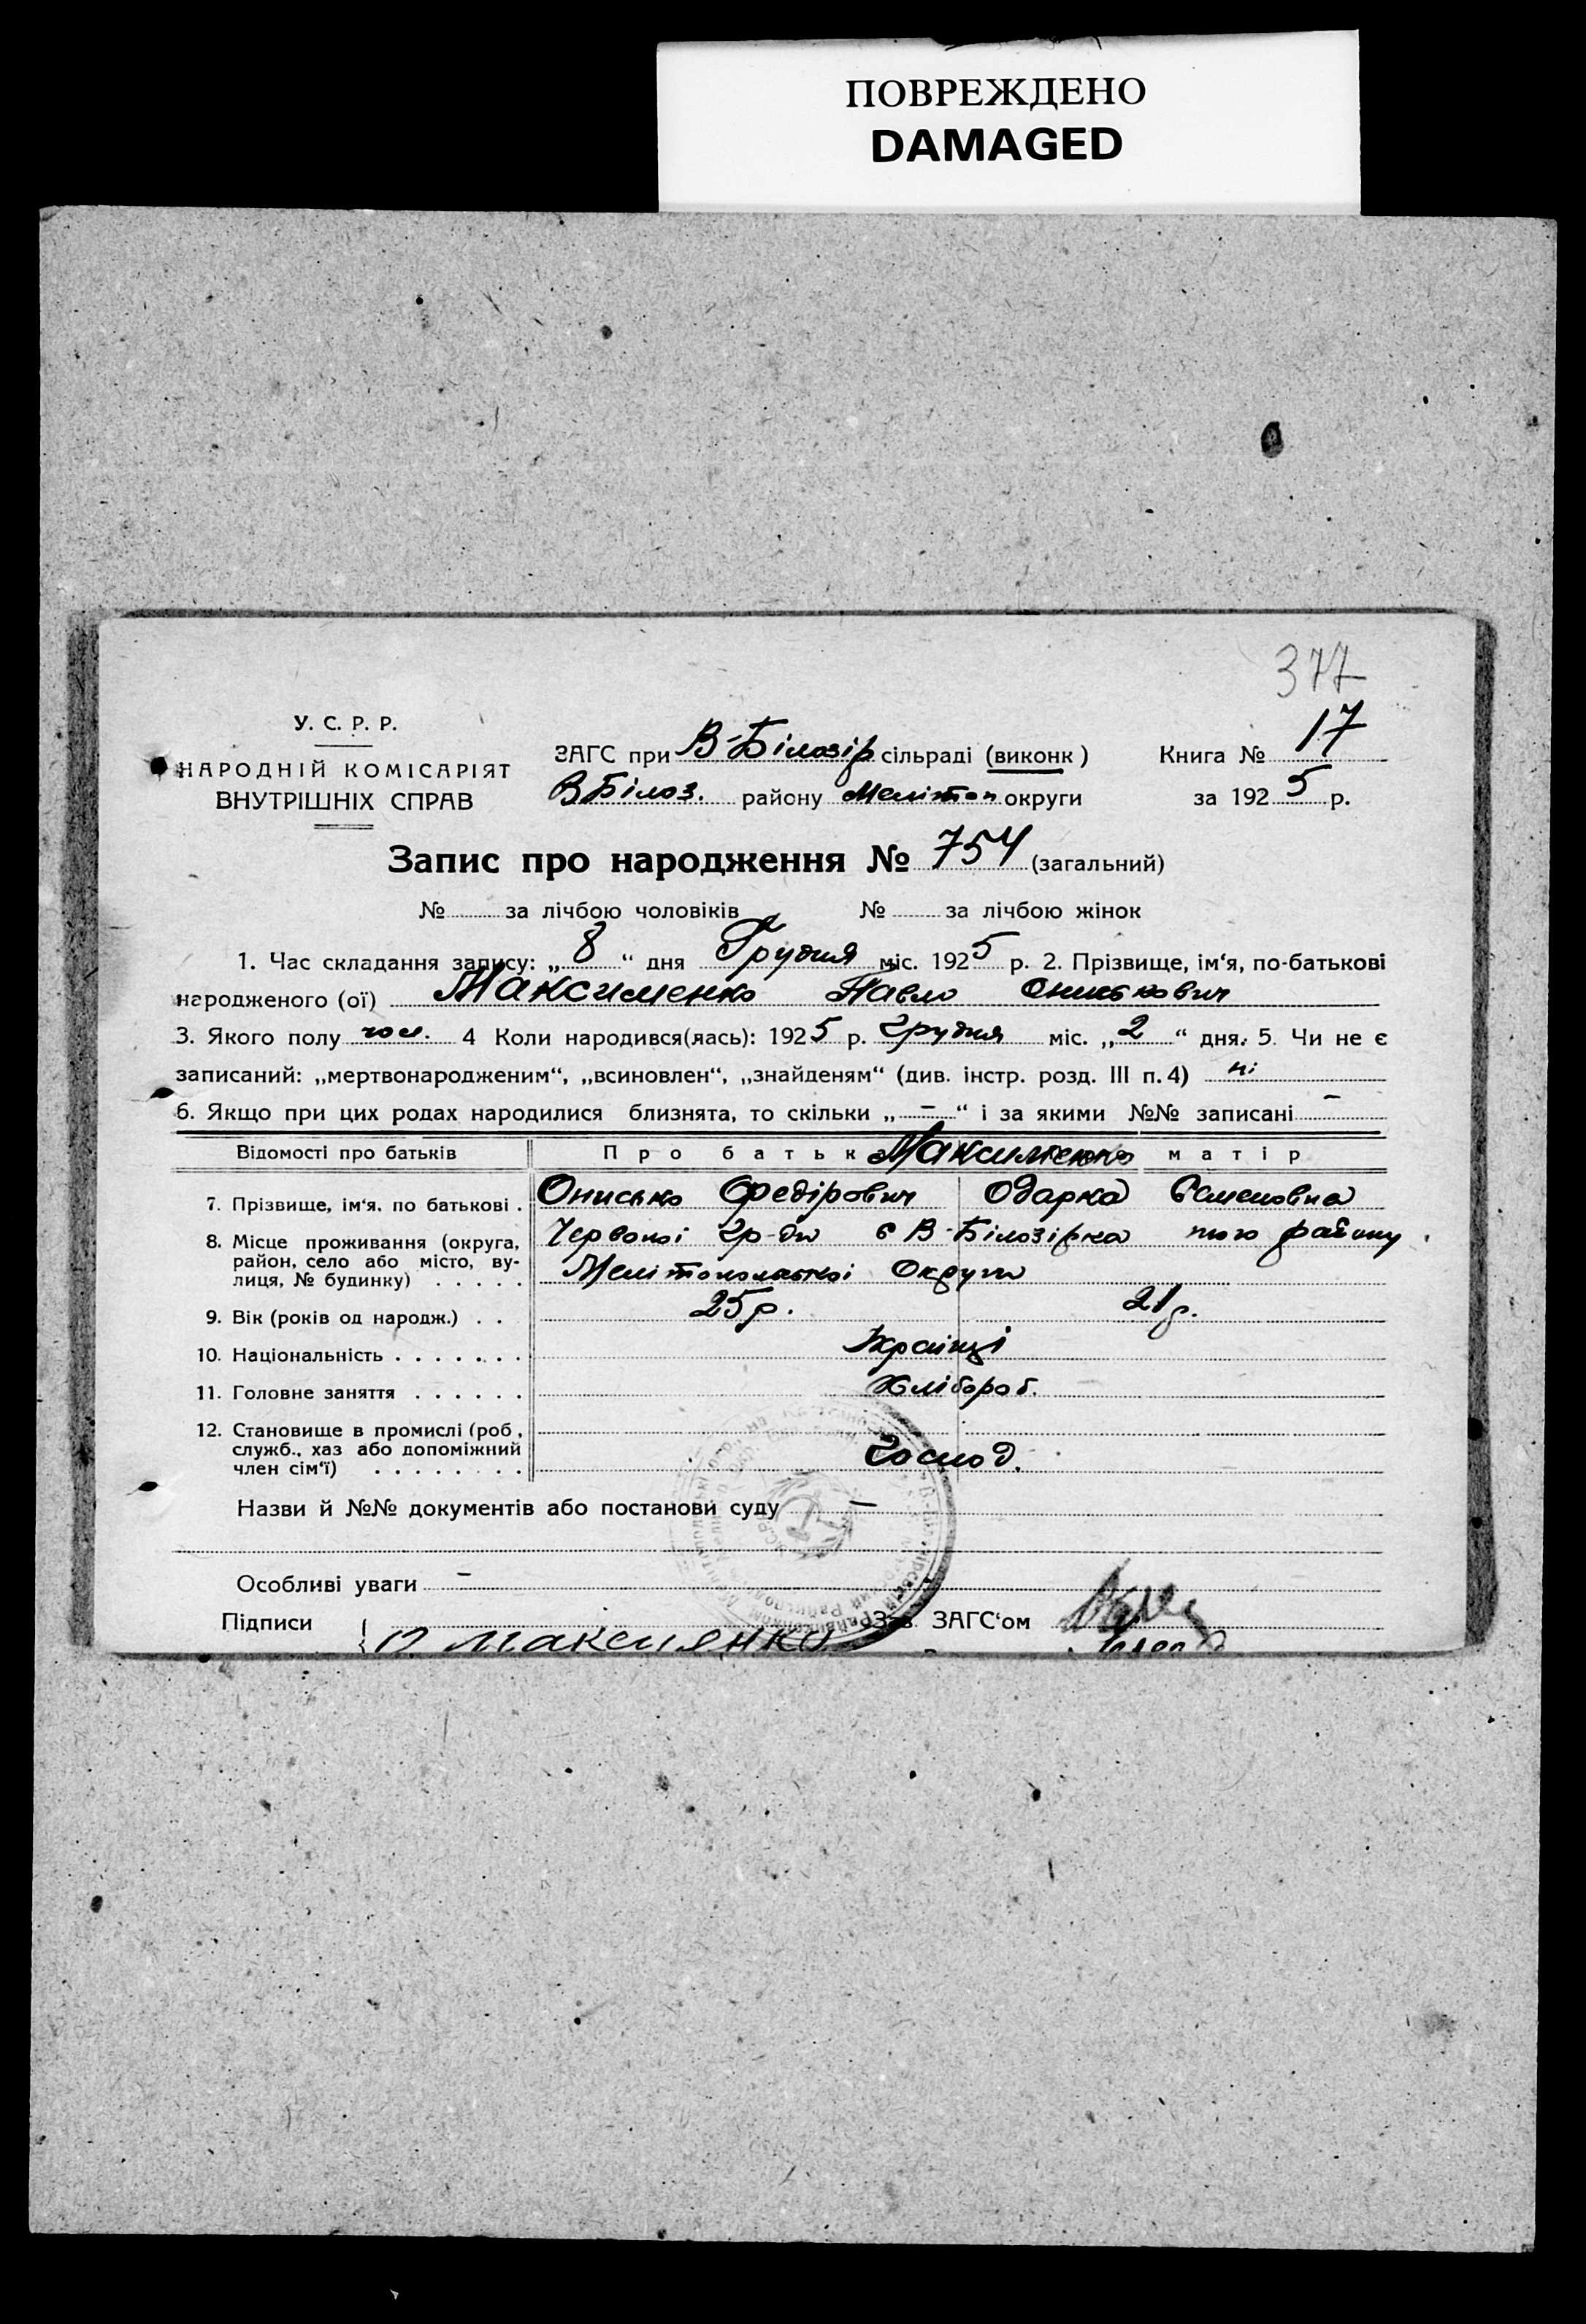 ПОВРЕЖДЕНО
DAMAGED
377
У. С. Р. Р.
НАРОДНІЙ КОМІСАРІЯТ
ВНУТРІШНІХ СПРАВ
ЗАГС при В-Білозір сільраді (виконк) Книга № 17
В Білоз. району Меліто‌п округи за 1925 р.
Запис про народження № 754 (загальний)
№ за лічбою чоловіків № за лічбою жінок
1. Час складання запису: „8“ дня Грудня міс. 1925 р. 2. Прізвище, ім‘я, по-батькові
народженого (ої) Максименко Павло Ониськович
3. Якого полу чол. 4 Коли народився(лась): 1925 р. Грудня міс. „2“ дня. 5. Чи не є
записаний: „мертвонародженим“, „всиновлен“, „знайденям“ (див. інстр. розд. III п. 4) ні
6. Якщо при цих родах народилися близнята, то скільки „ – “ і за якими №№ записані –
Відомості про батьків Про батька Максименко матір
7. Прізвище, ім‘я, по батькові . Онисько Федірович Одарка Семеновна
8. Місце проживання (округа, Червоної гр-ди с В-Білозірка того району
район, село або місто, ву-
лиця, № будинку) . . . . . Мелітопольської Округи
9. Вік (років од народж.) . . 25 р. 21 р.
10. Національність . . . . . . . Країнці
11. Головне заняття . . . . . . Хлібороб.
12. Становище в промислі (роб ,
служб., хаз або допоміжний
член сім‘ї) . . . . . . . . Господ.
Назви й №№ документів або постанови суду –
Особливі уваги –
Підписи Зав ЗАГС‘ом
О. Максиянко